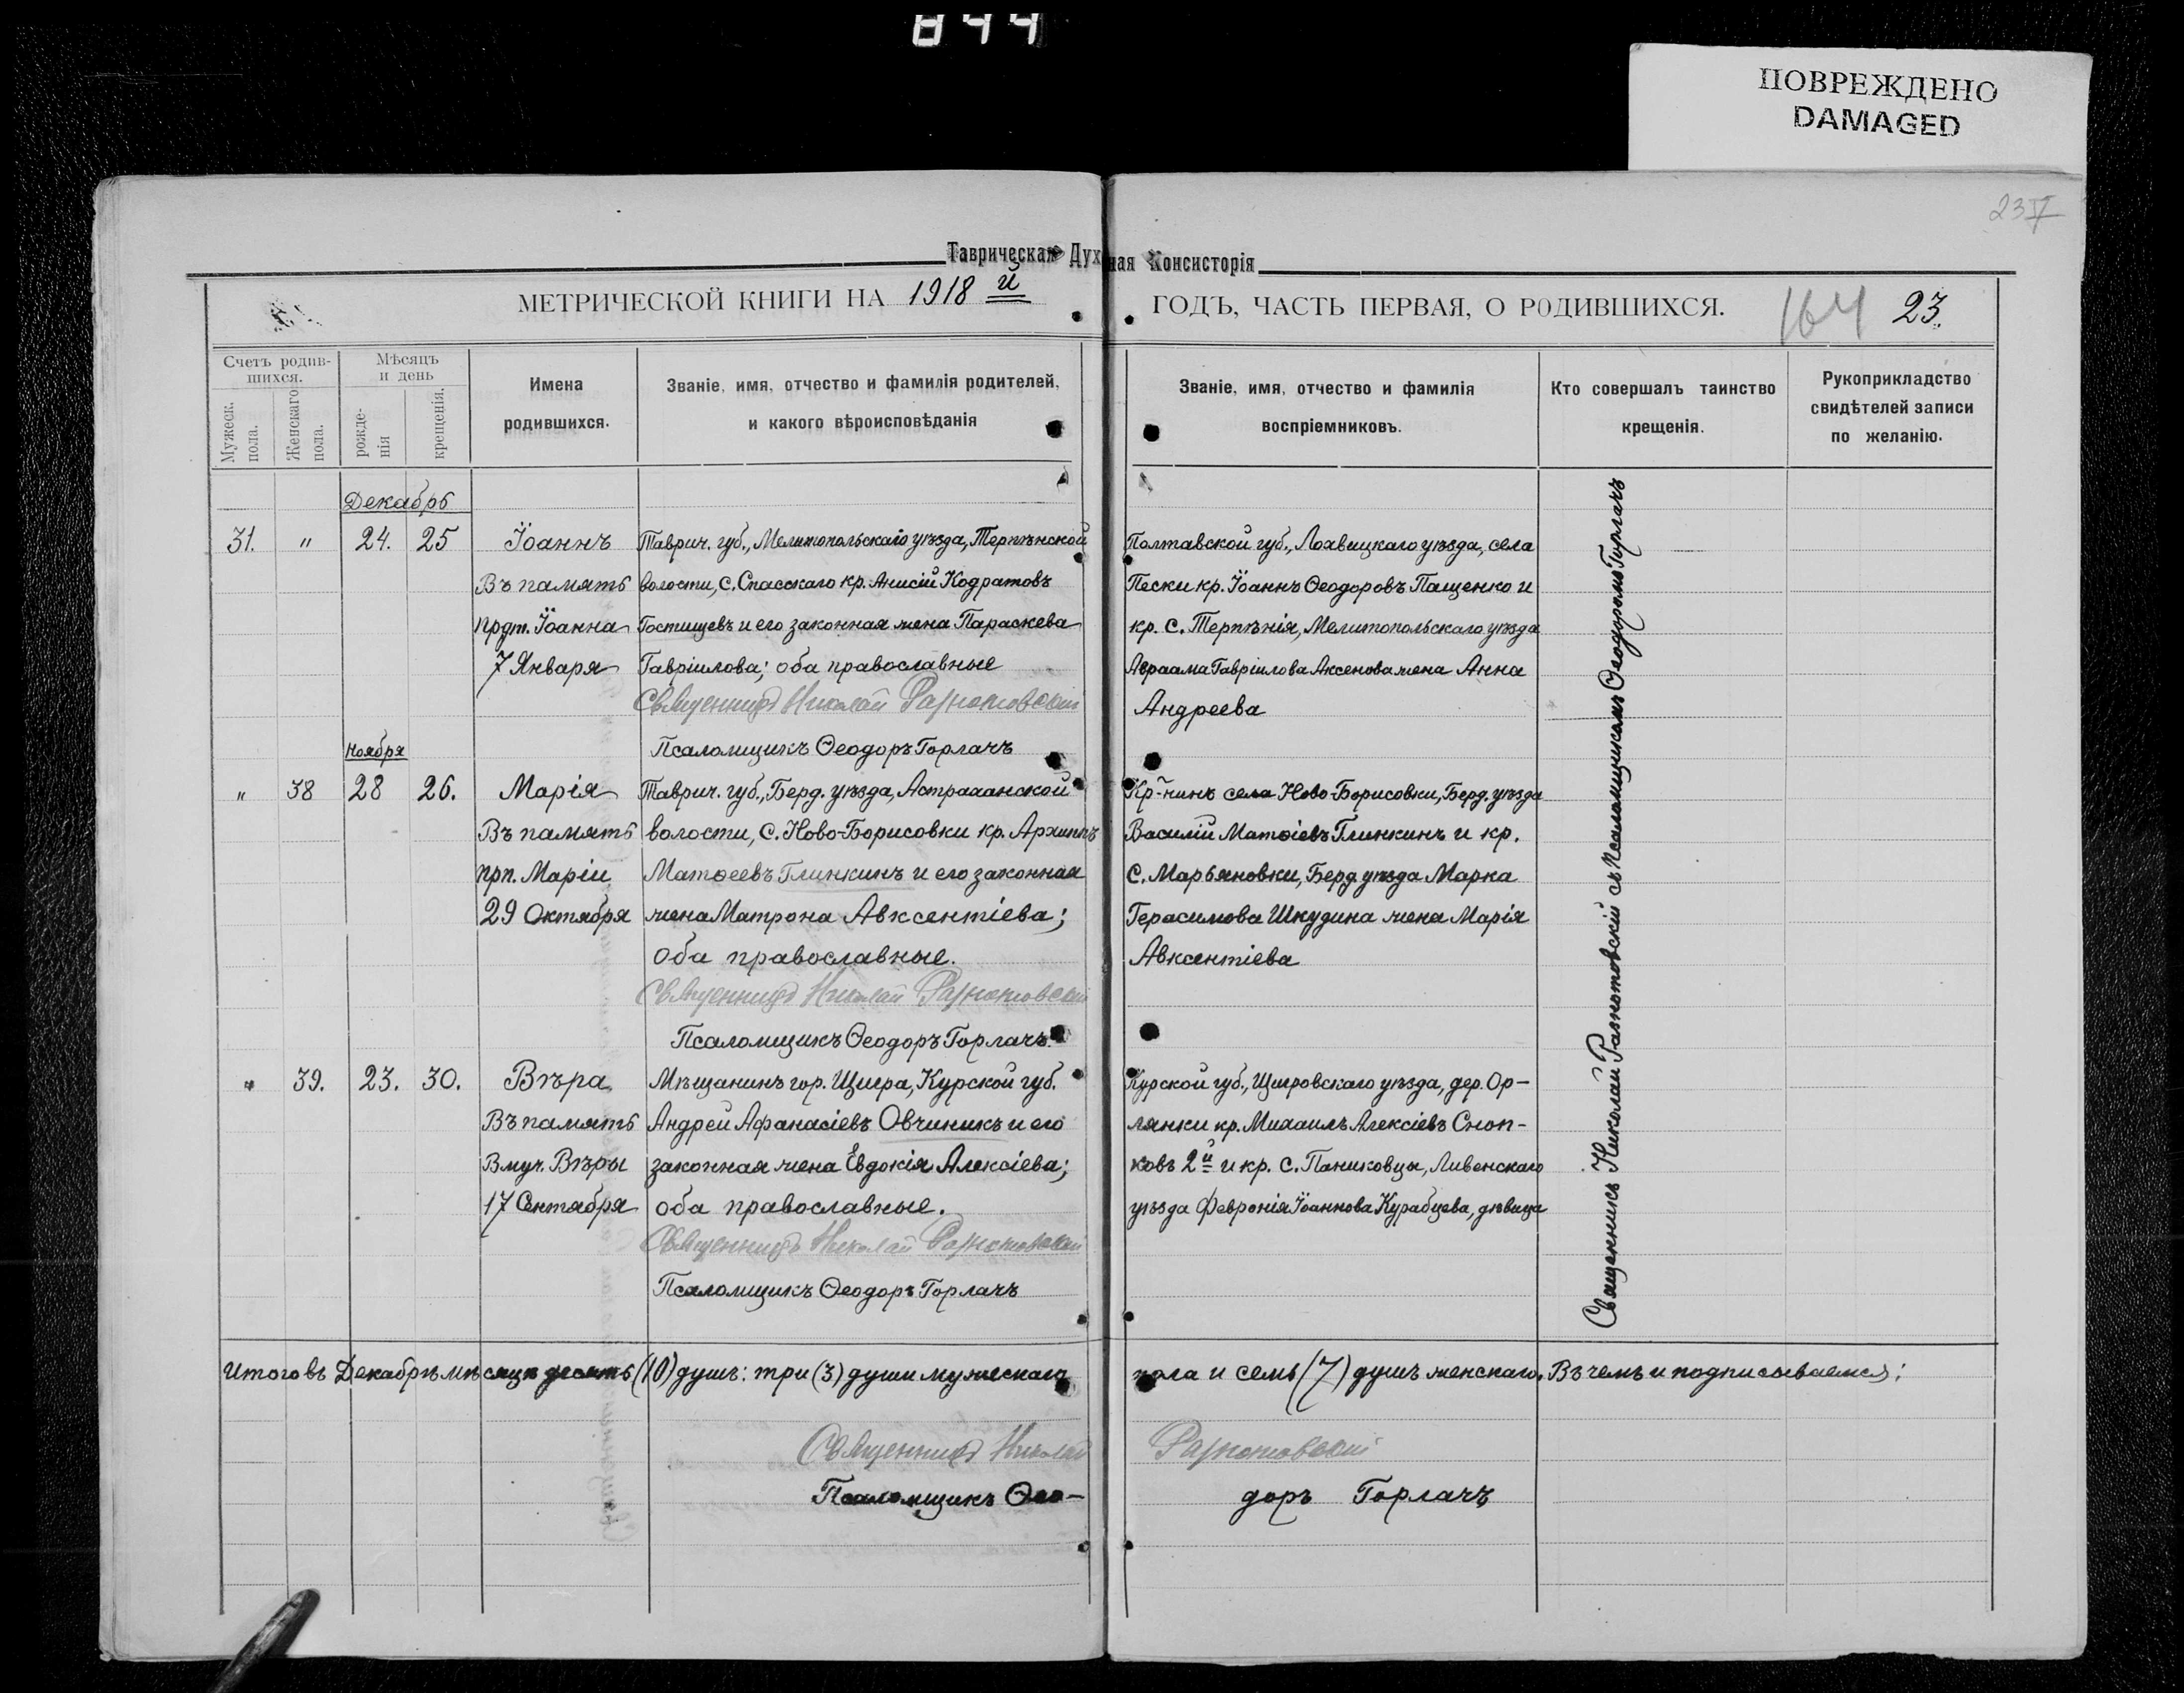 844
ПОВРЕЖДЕНО
DAMAGED
23
Таврическая Духовная Консисторія
МЕТРИЧЕСКОЙ КНИГИ НА 1918 й ГОДЪ, ЧАСТЬ ПЕРВАЯ, О РОДИВШИХСЯ.
164 23.
Счетъ родив-
шихся.
Мужеск.
пола.
Женскаго
пола.
Мѣсяцъ
и день
рожде-
нія
крещенія.
Имена
родившихся.
Званіе, имя, отчество и фамилія родителей,
и какого вѣроисповѣданія
Званіе, имя, отчество и фамилія
воспріемниковъ.
Кто совершалъ таинство
крещенія.
Рукоприкладство
свидѣтелей записи
по желанію.
Декабрь
31. " 24. 25
Іоаннъ
Въ память
прдт. Іоанна
7 Января
Таврич. губ., Мелитопольскаго уѣзда, Терпѣнской
волости, С. Спасскаго кр. Анисій Кодратовъ
Гостищевъ и его законная жена Параскева
Гавріилова; оба православные
Священникъ Николай Разнотовскій
Псаломщикъ Ѳеодоръ Горлачъ
Полтавской губ., Лохвицкаго уѣзда, села
Пески кр. Іоаннъ Ѳеодоровъ Пащенко и
кр. С. Терпѣнія, Мелитопольскаго уѣзда
Авраама Гавріилова Аксенова жена Анна
Андреева
Ноября
" 38 28 26.
Марія
Въ память
прп. Маріи
29 Октября
Таврич. губ., Берд. уѣзда, Астраханской
волости, С. Ново-Борисовки кр. Архиппъ
Матѳеевъ Глинкинъ и его законная
жена Матрона Авксентіева;
оба православные.
Священникъ Николай Разнотовскій
Псаломщикъ Ѳеодоръ Горлачъ.
Кр-нинъ села Ново-Борисовки, Берд. уѣзда
Василій Матѳіевъ Глинкинъ и кр.
С. Марьяновки, Берд уѣзда Марка
Герасимова Шкудина жена Марія
Авксентіева
" 39. 23. 30.
Вѣра
Въ память
Вмуч. Вѣры
17 Сентября
Мѣщанинъ гор. Щигра, Курской губ.
Андрей Афанасіевъ Овчиникъ и его
законная жена Евдокія Алексіева;
оба православные.
Священникъ Николай Разнотовскій
Псаломщикъ Ѳеодоръ Горлачъ
Курской губ., Щигровскаго уѣзда, дер. Ор-
лянки кр. Михаилъ Алексіевъ Сноп-
ковъ 2й и кр. С. Паниковцы, Ливенскаго
уѣзда Февронія Іоаннова Курабцева, дѣвица
Священникъ Николай Разнотовскій съ Псаломщикомъ Ѳеодоромъ Горлачъ
Итого въ Декабрѣ мѣсяцѣ десять (10) душъ: три (3) души мужескаго пола и семь (7) душъ женскаго. Въ чемъ и подписываемся:
Священникъ Николай Разнотовскій
Псаломщикъ Ѳео-доръ Горлачъ